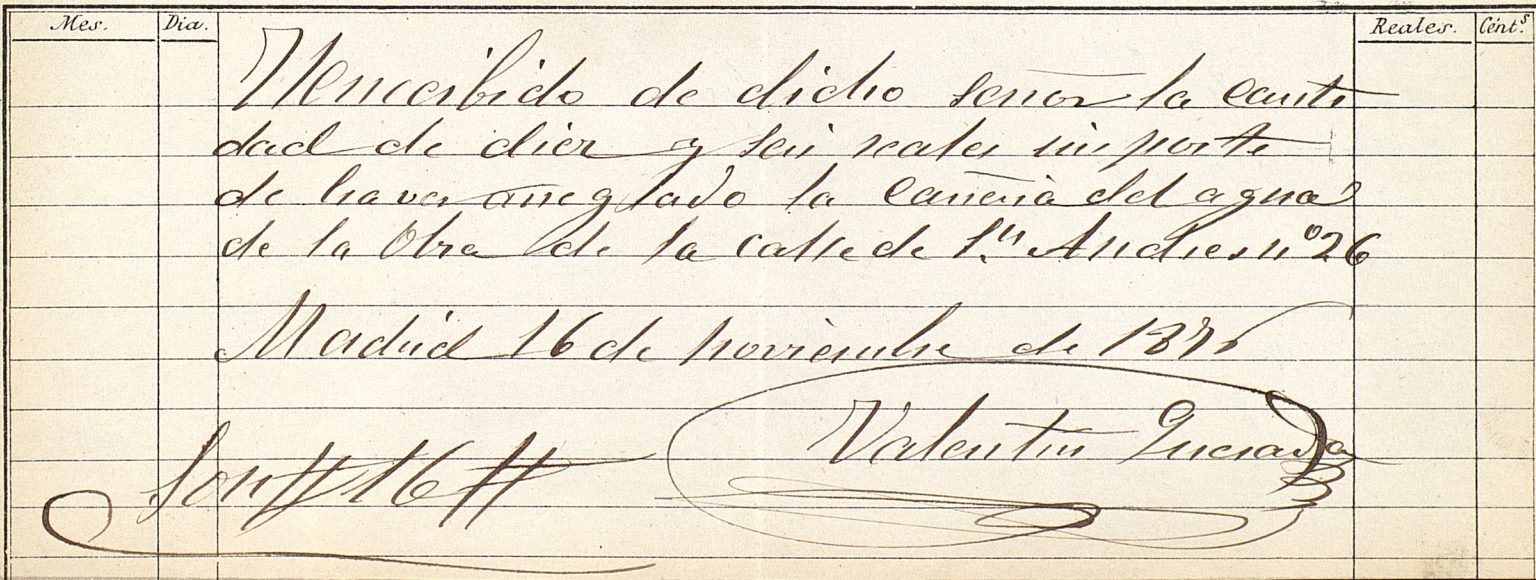 Mes. Dia. Reales. Cént.s
Henrecibido de dicho señor la canti
dad de diez y seis reales importe
de haver arreglado la cañeria del agua
de la Obra de la calle de Sn. Andres nº 26
Madrid 16 de noviembre de 1876
Valentin
Son # 16 #